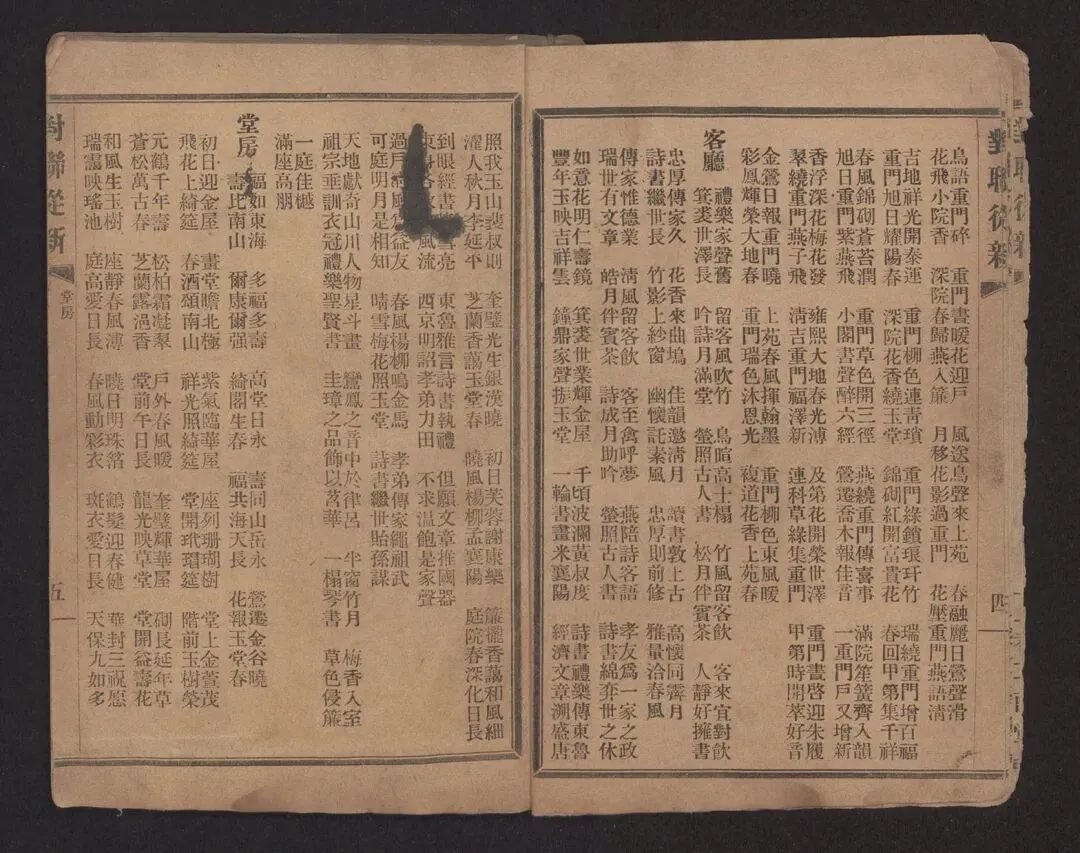 鳥語重門碎 重門晝暖花迎戶 風送鳥聲來上苑 春融麗日鶯聲滑
花飛小院香 深院春歸燕入簾 月移花影過重門 花壓重門燕語清
吉地祥光開泰運 重門柳色連青瑣 重門綠鎖環玕竹 瑞繞重門增百福
重門旭日耀陽春 深院花香繞玉堂 錦砌紅開富貴花 春回甲第集千祥
春風錦砌蒼苔潤 重門草色開三徑 燕繞重門傳喜事 滿院笙簧齊入韻
旭日重門紫燕飛 小閣書聲醉六經 鶯遷喬木報佳音 一重門戶又增新
香浮深花梅花發 雍熙大地春光溥 及第花開榮世澤 重門晝啓迎朱履
翠繞重門燕子飛 清吉重門福澤新 連科草綠集重門 甲第時開萃好音
金鶯日報重門曉 上苑春風揮翰墨 重門柳色東風暖
彩鳳輝榮大地春 重門瑞色沐恩光 複道花香上苑春
客廳
禮樂家聲舊 留客風吹竹 鳥喧高士榻 竹風留客飲 客來宜對飲
箕裘世澤長 吟詩月滿堂 螢照古人書 松月伴賓茶 人靜好擁書
忠厚傳家久 花香來曲塢 佳韻邀清月 讀書敦上古 高懷同霽月
詩書繼世長 竹影上紗窗 幽懷託素風 忠厚則前修 雅量洽春風
傳家惟德業 清風留客飲 客至禽呼夢 燕陪詩客語 孝友爲一家之政
瑞世有文章 皓月伴賓茶 詩成月助吟 螢照古人書 詩書綿奕世之休
如意花明仁壽鏡 箕裘世業輝金屋 千頃波瀾黃叔度 詩書禮樂傳東魯
豐年玉映吉祥雲 鐘鼎家聲振玉堂 一輪書畫米襄陽 經濟文章溯盛唐
對聯從新
四
照我玉山裴叔則 奎璧光生銀漢曉 初日芙蓉謝康樂 簾攏香藹和風細
濯人秋月李延平 芝蘭香藹玉堂春 曉風楊柳孟襄陽 庭院春深化日長
到眼經書 亮 東魯雅言詩書執禮 但願文章推國器
風流 西京明詔孝弟力田 不求温飽是家聲
過 風 益友 春風楊柳鳴金馬 孝弟傳家繩祖武
可庭明月是相知 晴雪梅花照玉堂 詩書繼世貽孫謀
天地獻奇山川人物星斗畫 鸞鳳之音中於律呂 半窗竹月 梅香入室
祖宗垂訓衣冠禮樂聖賢書 圭璋之品飾以茗華 一榻琴書 草色侵簾
一庭佳樾
滿座高朋
堂房
福如東海 多福多壽 高堂日永 壽同山岳永 鶯遷金谷曉
壽比南山 爾康爾强 綺閣生春 福共海天長 花報玉堂春
初日迎金屋 畫堂瞻北極 紫氣臨華屋 座列珊瑚樹 堂上金萱茂
飛花上綺筵 春酒頌南山 祥光照綺筵 堂開玳瑁筵 階前玉樹榮
元鶴千年壽 松柏霜凝翠 戶外春風暖 奎璧輝華屋 硐長延年草
蒼松萬古春 芝蘭露浥香 堂前午日長 龍光映草堂 堂開益壽花
和風生玉樹 座靜春風溥 曉日明珠箔 鶴髮迎春健 華封三祝愿
瑞靄映瑤池 庭高愛日長 春風動彩衣 斑衣愛日長 天保九如多
對聯從新
堂房
五